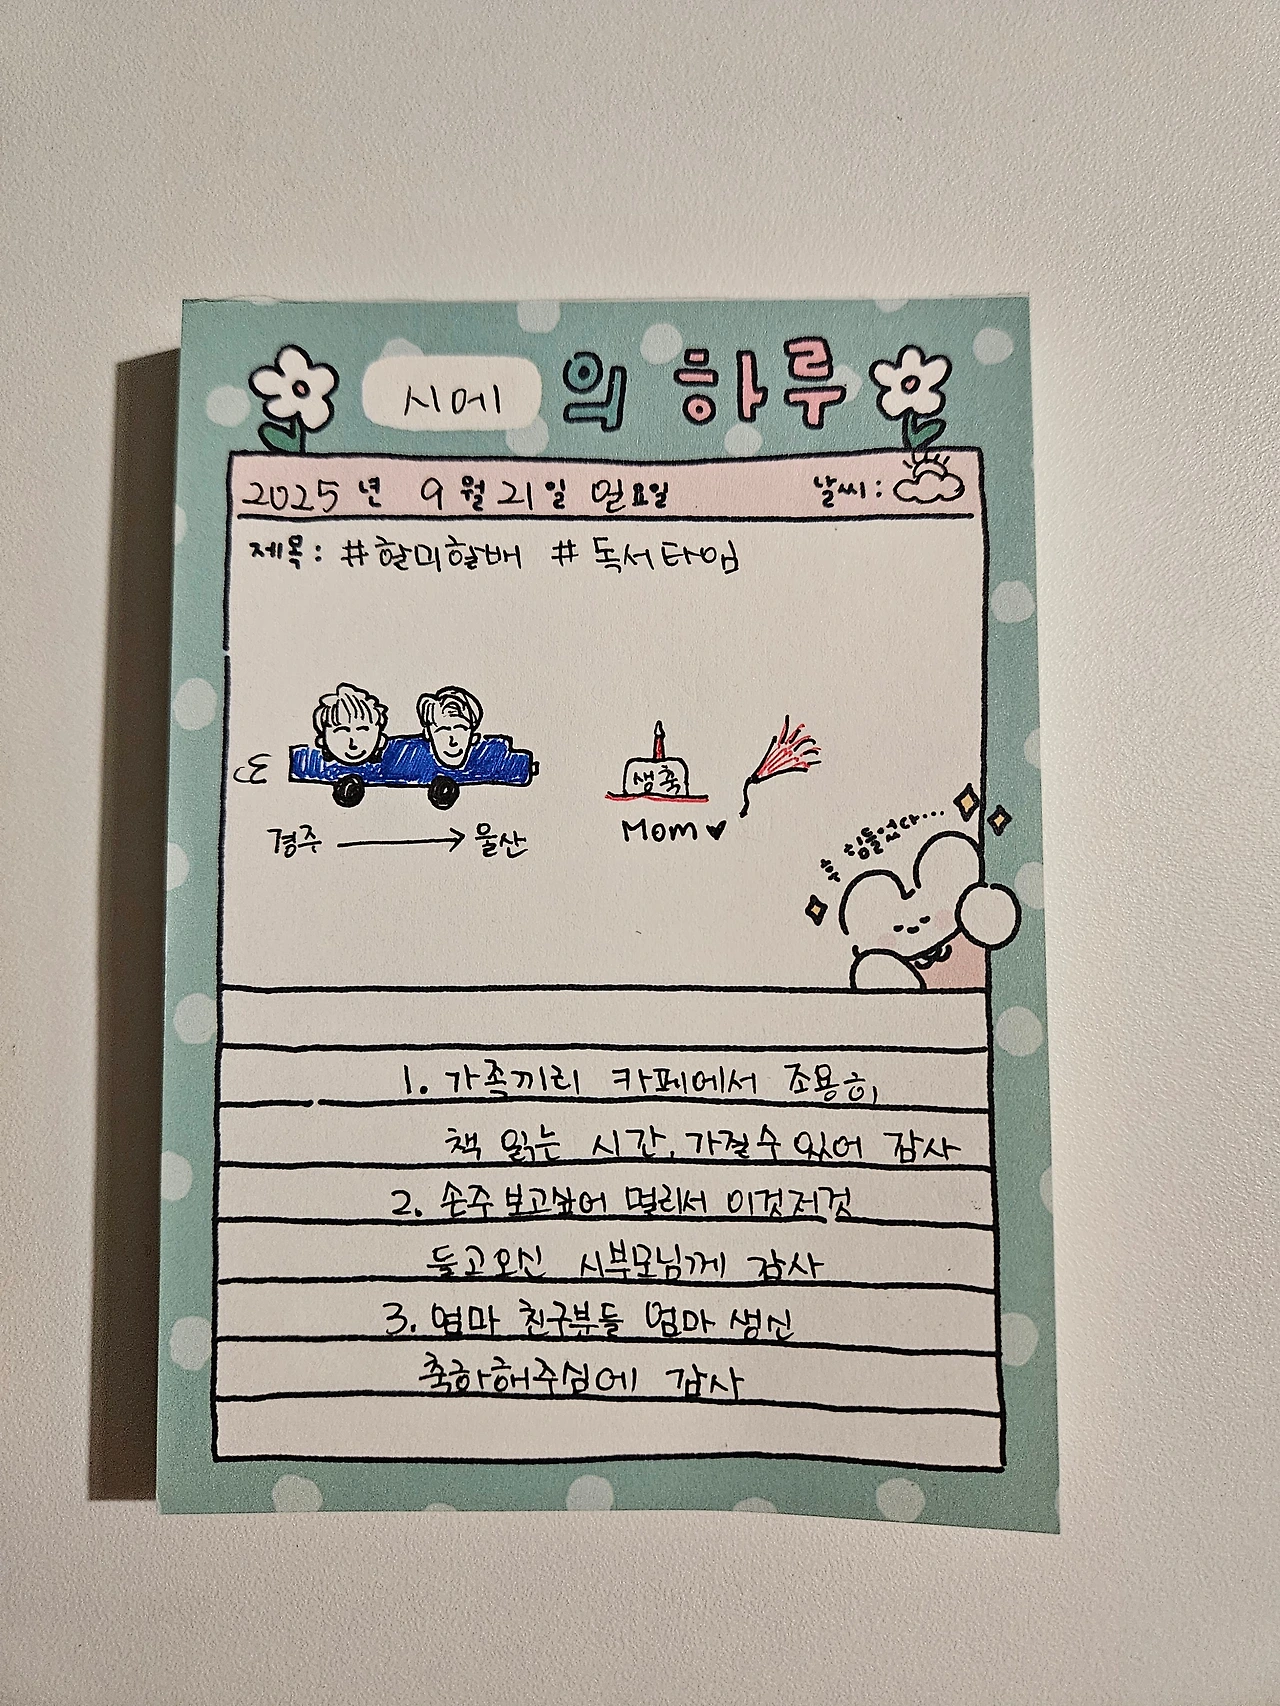 시에의 하루
2025년 9월 21일 일요일 날씨:
제목: #할미할배 #독서타임
생축
경주 → 울산
Mom♥
휴 힘들었다...
1. 가족끼리 카페에서 조용히,
책 읽는 시간, 가질수 있어 감사
2. 손주 보고싶어 멀리서 이것저것
들고오신 시부모님께 감사
3. 엄마 친구분들 엄마 생신
축하해주심에 감사